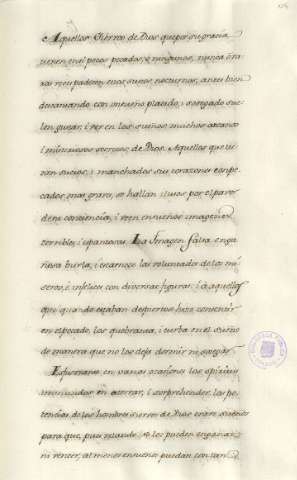 Aquellos Siervos de Dios que por su gracia
tienen en si pocos pecados, o ningunos, nunca ó ra
ras vezes padecen suos nocturnos, antes bien
descansando con un sueño placido, i sosegado sue
len gustar, i ver en los sueños muchos arcanos
i misteriosos secretos de Dios. Aquellos que tie
nen sucios, i manchados sus corazones con pe
cados mas graves, se hallan por el pavor
de su conciencia, i ven en sueños imagenes
terribles, i espantosas. La Imagen falsa enga
ñosa burla, i escarnece las voluntades de los mi
seros, e infelices con diversas figuras: i a aquellos
que quando estaban despiertos hizo consentir
en el pecado, los quebranta, i turba en el sueño
de manera que no los deja dormir ni sosegar.
Esfuerzanse en varias ocasiones los espiritus
inmundos en aterrar, i sorprehender las po
tencias de los hombres siervos de Dios entre sueños
para que, pues velando no los pueden engañar
ni vencer, al menos en sueños puedan con van